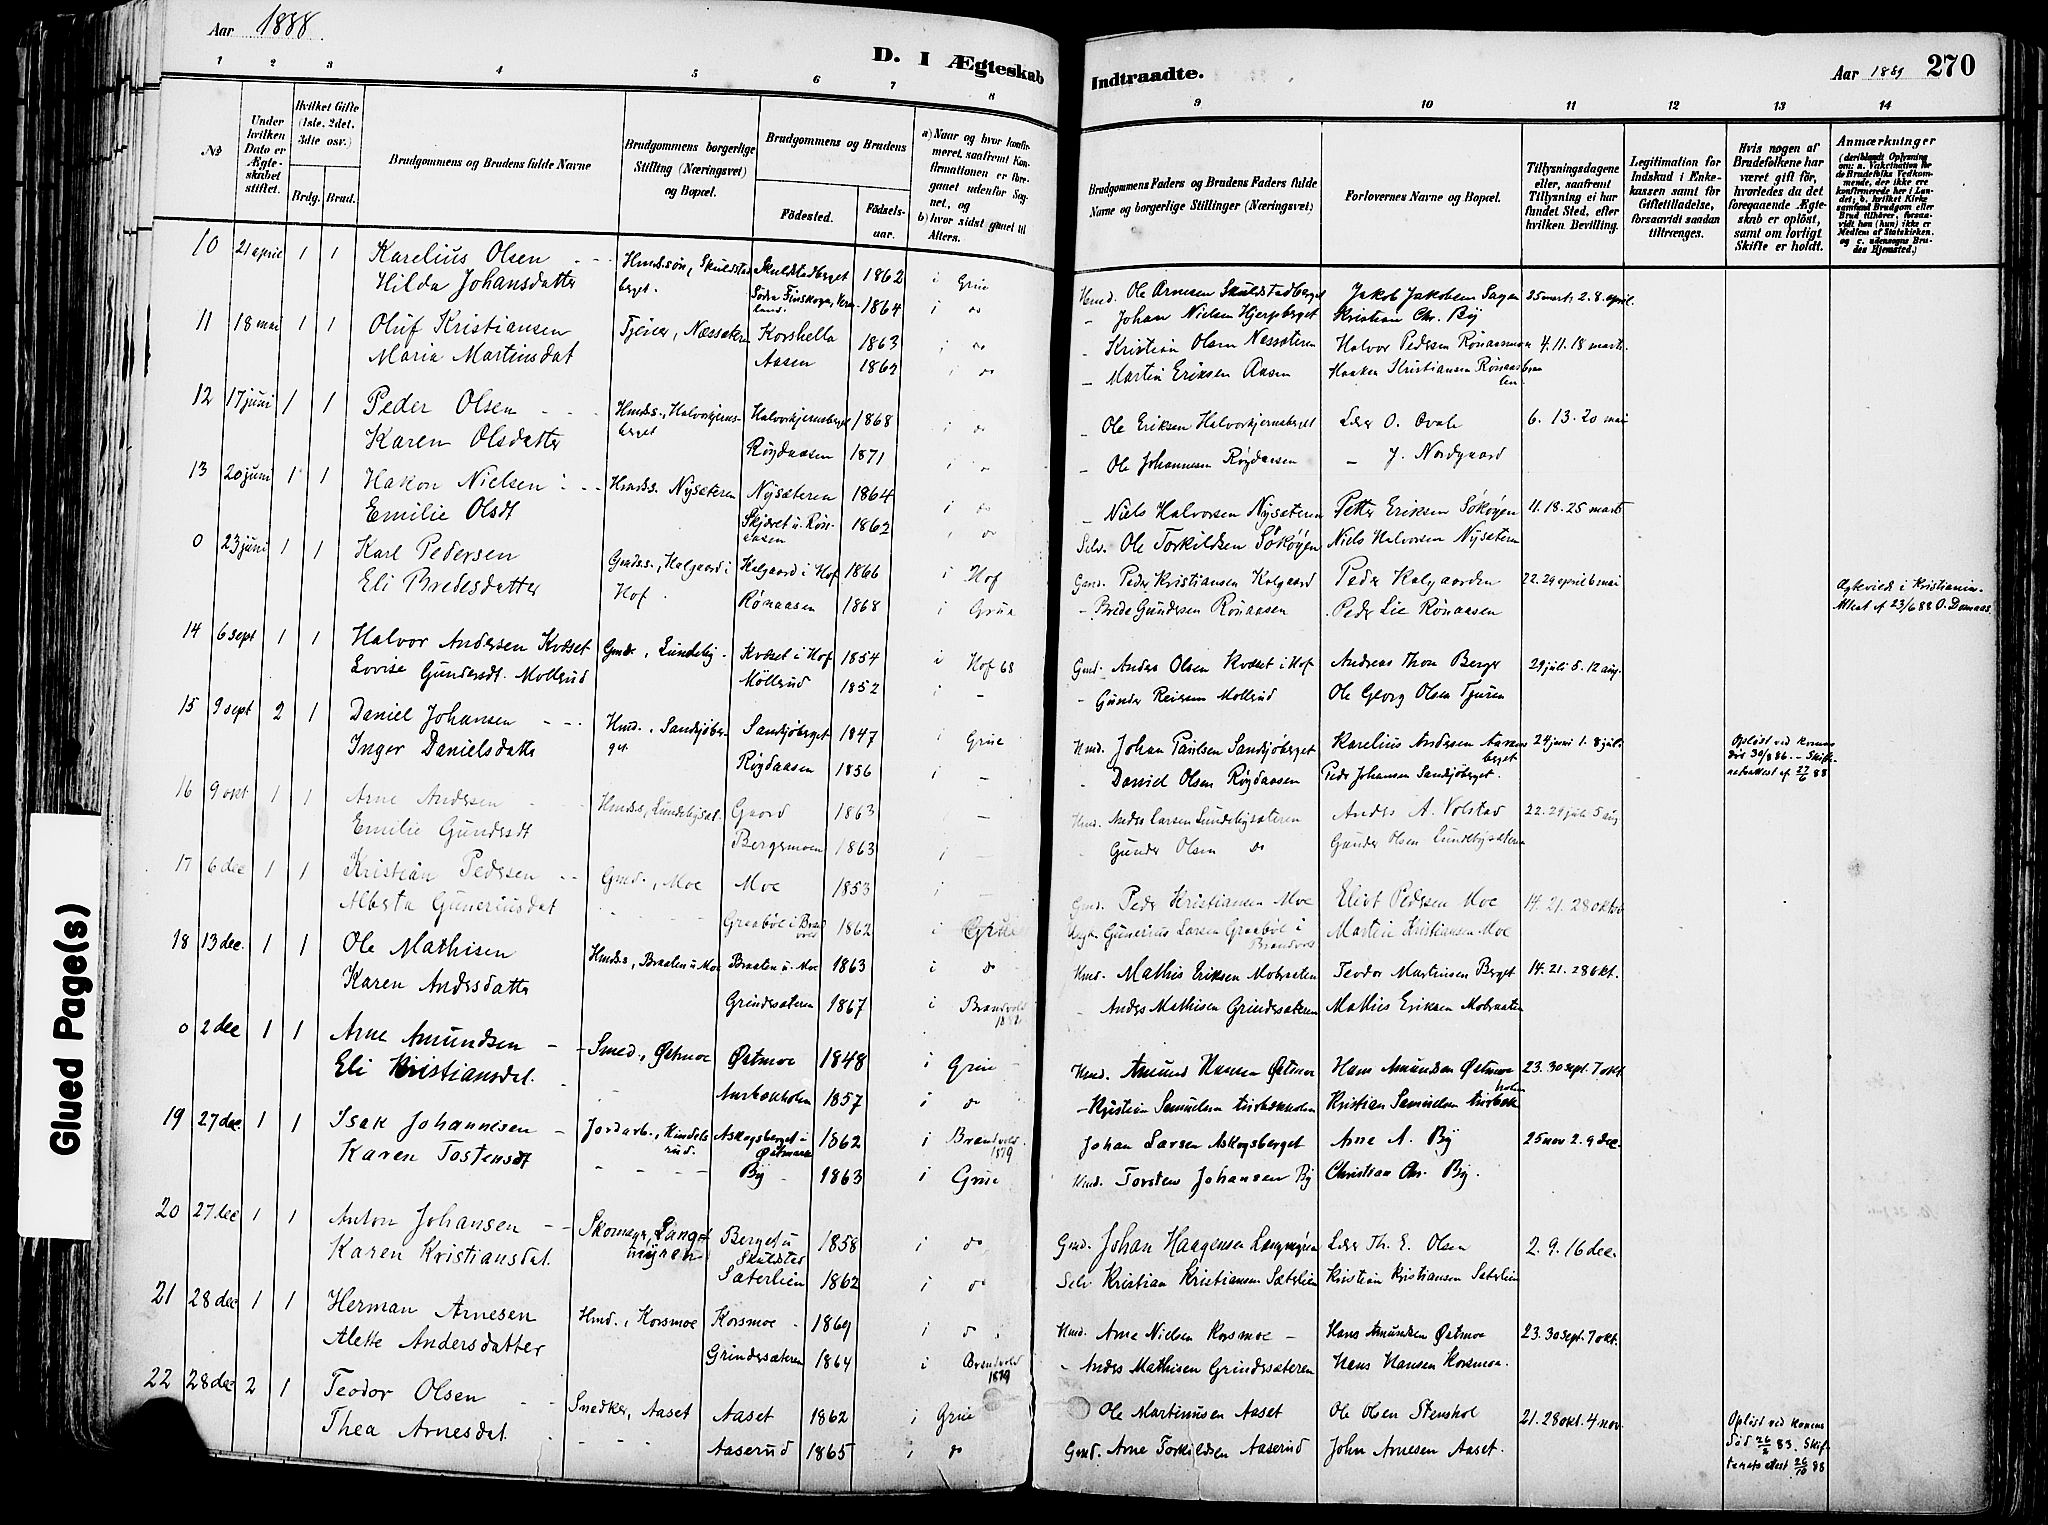 Aar 1888.
D. I Ægteskab
Indtraadte.
Aar 1889
270
1 2 3 4 5 6 7 8
9 10 11 12 13 14
No
Under hvilken Dato er Ægteskabet stiftet.
Hvilket Gifte (1ste, 2det, 3die osv.)
Brdg. Brud.
Brudgommens og Brudens fulde Navne
Brudgommens borgerlige Stilling (Næringsvei) og Bopæl.
Brudgommens og Brudens
Fødested.
Fødselsaar.
a) Naar og hvor konfirmeret, saafremt Konfirmationen er foregaaet udenfor Sognet, og b) hvor sidst gaaet til Alters.
Brudgommens Faders og Brudens Faders fulde Navne og borgerlige Stillinger (Næringsvei)
Forlovernes Navne og Bopæl.
Tillysningsdagene eller, saafremt Tillysning ei har fundet Sted, efter hvilken Bevilling.
Legitimation for Indskud i Enkekassen samt for Giftetilladelse, forsaavidt saadan tiltrænges.
Hvis nogen af Brudefolkene har været gift før, hvorledes da det foregaaende Ægteskab er opløst, samt om lovligt Skifte er holdt.
Anmærkninger
10 21 april 1 1 Karelius Olsen Hmdssøn, Skulstadberget. Skulstadberget 1862 i Grue Hmd. Ole Arnesen Skulstadberget Jakob Jakobsen Sagen 25 marts 2. 8. april.
Hilda Johansdatter Sødra Finskoga, Vermland. 1864 i do - Johan Nielsen Hjerpberget Kristian Chr. By
11 18 mai 1 1 Oluf Kristiansen Tjener, Næssæteren Korshella 1863 i do - Kristian Olsen Næssæteren Halvor Pedersen Rønaasmoen 4. 11. 18 marts.
Maria Martinsdat Aasen 1862 i do - Martin Eriksen Aasen Haaken Kristiansen
12 17 juni 1 1 Peder Olsen Hmdss., Halvorkjernsberget Halvorkjernsberget 1868 i do - Ole Eriksen Halvorkjernsberget Lærer O. Øvale 6. 13. 20 mai
Karen Olsdatter Røgdaasen 1871 i do - Ole Johannesen Røgdaasen - J. Nordgaard
13 20 juni 1 1 Hakon Nielsen Hmdss. Nysæteren Nysæteren 1864 i do - Niels Halvorsen Nysæteren Petter Eriksen Søkojen 11. 18. 25 marts
Emilie Olsdt 1862 i do Selv. Ole Torkildsen Søkojen Niels Halvorsen Nysæteren
0 23 juni 1 1 Karl Pedersen Gmdss., Kalgaard i Hof. Kalgaard i Hof 1866 i Hof Gmd. Peder Kristiansen Kalgaard Peder Kalgaarden 22. 29 april 6 mai Ægteviede i Kristiania. Attest af 23/6 88 O. Domaas.
Eli Bredesdatter Rønaasen 1868 i Grue - Brede Gundersen Rønaasen Peder Lie Rønaasen
14 6 sept 1 1 Halvor Andersen Kvæset Gmd., Lundeby Kvæset i Hof 1854 i Hof 68 Gmd. Anders Olsen Kvæset i Hof Andreas Thon Berger 29 juli 5. 12 aug.
Lovise Gundersdt. Møllerud Møllerud 1852 i - - Gunder Reiersen Møllerud Ole Georg Olsen Tjuren
15 9 sept 2 1 Daniel Johansen Hmd., Sandsjøberget. Sandsjøberget 1847 i Grue Hmd. Johan Paulsen Sandsjøberget Karelius Andersen 24 juni 1. 8 juli. Opløst ved konens død 30/8 86. - Skifteretsattest af 27/6 88
Inger Danielsdatter Røgdaasen 1856 i - - Daniel Olsen Røgdaasen Peder Johansen Sandsjøberget.
16 9 okt 1 1 Arne Andersen Hmdss., Lundebysæt. Gaard 1863 - Hmd. Anders Larsen Lundebysæteren Anders A. Volstad 22. 29 juli 5 aug
Emilie Gundersdt Bergermoen 1863 i - - Gunder Olsen do Gunder Olsen Lundebysæteren
17 6 dec 1 1 Kristian Pedersen Gmd., Moe Moe 1853 i - Gmd. Peder Kristiansen Moe Elivt Pedersen Moe 14. 21. 28 oktbr
Alberta Guneriusdat Graabøl i Brandvold 1862 i Grue Gunerius Larsen Graabøl i Brandvold Martin Kristiansen Moe
18 13 dec. 1 1 Ole Mathisen Hmdss., Braaten u. Moe Braaten u. Moe 1863 i do Hmd. Mathis Eriksen Mobraaten Teodor Martinsen Berget 14. 21. 28 okt.
Karen Andersdatter Grindersæteren 1867 i Brandvold - Anders Mathisen Grindersæteren Mathis Eriksen Mobraaten
0 2 dec 1 1 Arne Amundsen - Smed., Østmoe Østmoe 1848 i Grue Hmd. Amund Hansen Østmoe Hans Amundsen Østmoe 23. 30 sept. 7 okt.
Eli Kristiansdat. 1857 i do - Kristian Samuelsen Kristian Samuelsen
19 27 dec. 1 1 Isak Johannesen - Jordarb., Kindelsrud. Askogsberget i Østmark 1862 i Brandvold. 1879 Johan Larsen Askogsberget Arne A. By 25 nov 2. 9 dec.
Karen Tostensdt By 1863 i Grue Hmd. Torsten Johansen By Christian Chr. By.
20 27 dec 1 1 Anton Johansen Skomager, Langmyren Berget u Skulstad 1858 i do Gmd. Johan Haagensen Langmyren Lærer Th. E. Olsen 2. 9. 16 dec.
Karen Kristiansdat. Sæterlien 1862 i do Selv Kristian Kristiansen Sæterlien Kristian Kristiansen Sæterlien
21 28 dec 1 1 Herman Arnesen Hmd., Korsmoe Korsmoe 1869 i do. Hmd. Arne Nielsen Korsmoe - Hans Amundsen Østmoe 23. 30 sept. 7 okt.
Alette Andersdatter Grindersæteren 1864 i Brandvold 1879 - Anders Mathisen Grindersæteren Hans Hansen Korsmoe.
22 28 dec 2 1 Teodor Olsen Snedker, Aaset Aaset 1862 i Grue Ole Martinusen Aaset Ole Olsen Stenshol 21. 28 okt. 4 nov. Opløst ved konens død 26/2 83. Skifteretsattest 26/10 88
Thea Arnesdat. Aaserud 1865 i do Gmd. Arne Torkildsen Aaserud John Arnesen Aaset.
Glued Page(s)